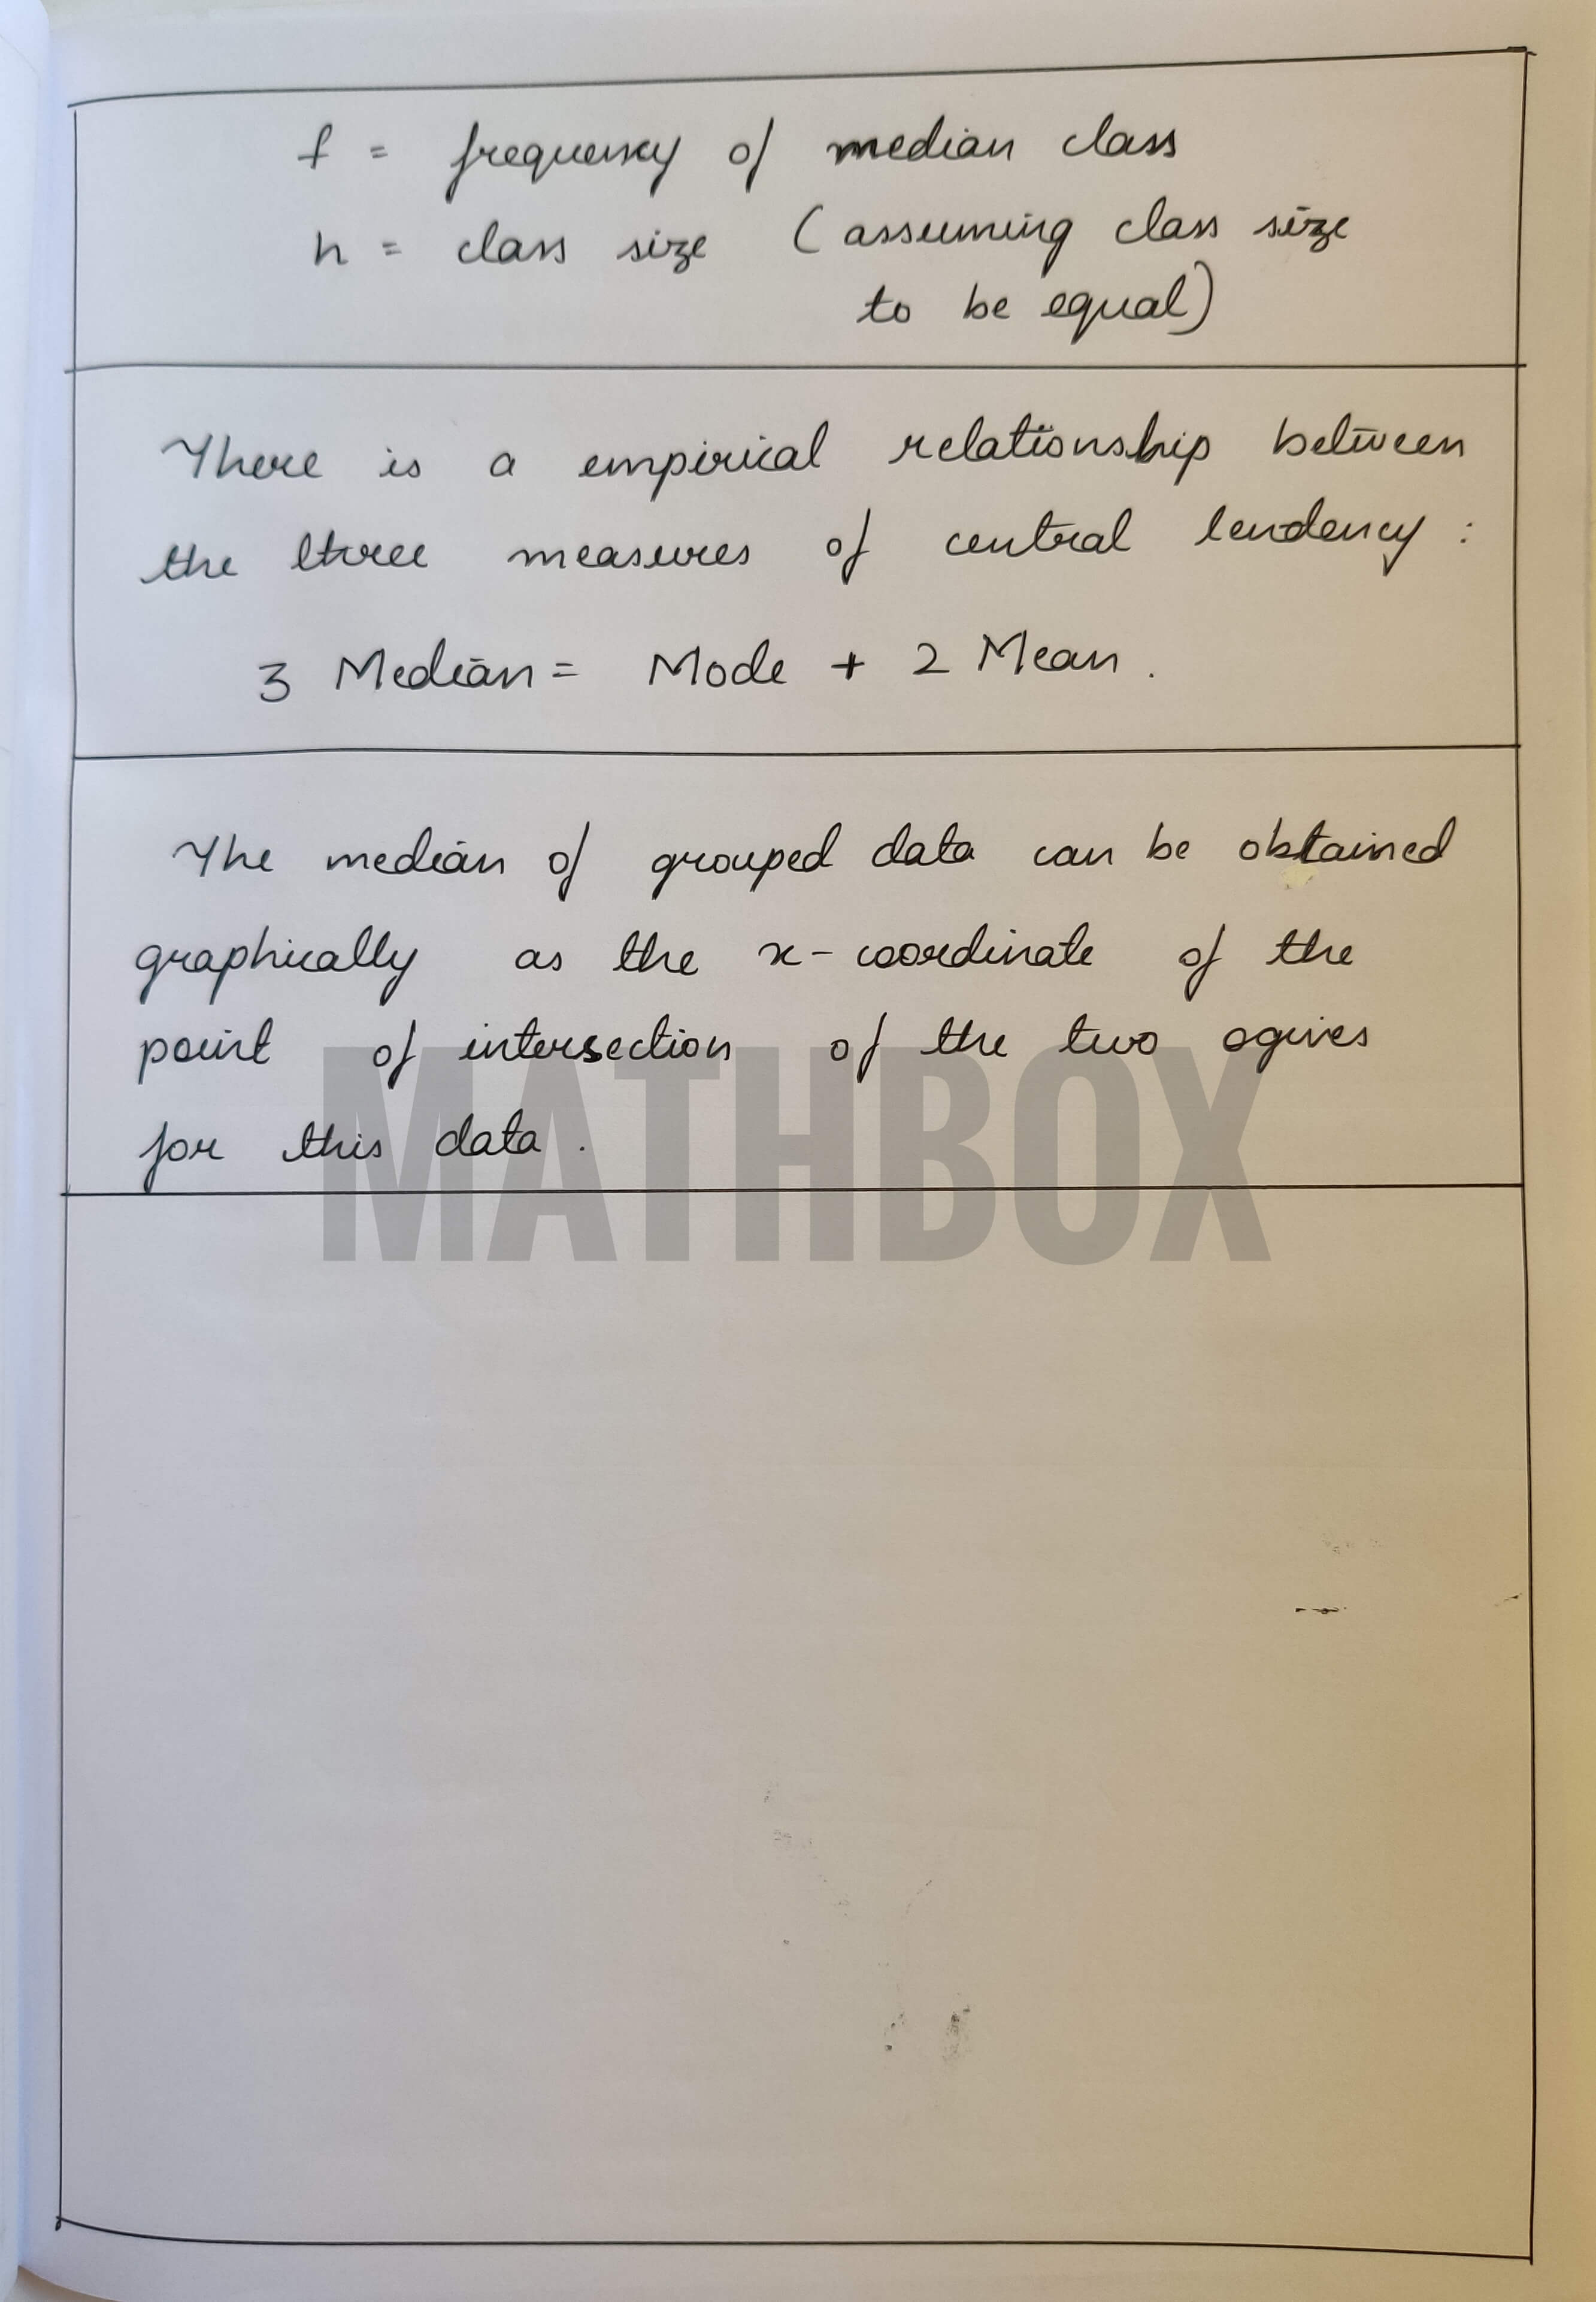 f = frequency of median class
h = class size (assuming class size
to be equal)
There is a empirical relationship between
the three measures of central tendency :
3 Median = Mode + 2 Mean.
The median of grouped data can be obtained
graphically as the x-coordinate of the
point of intersection of the two ogives
for this data.
MATHBOX